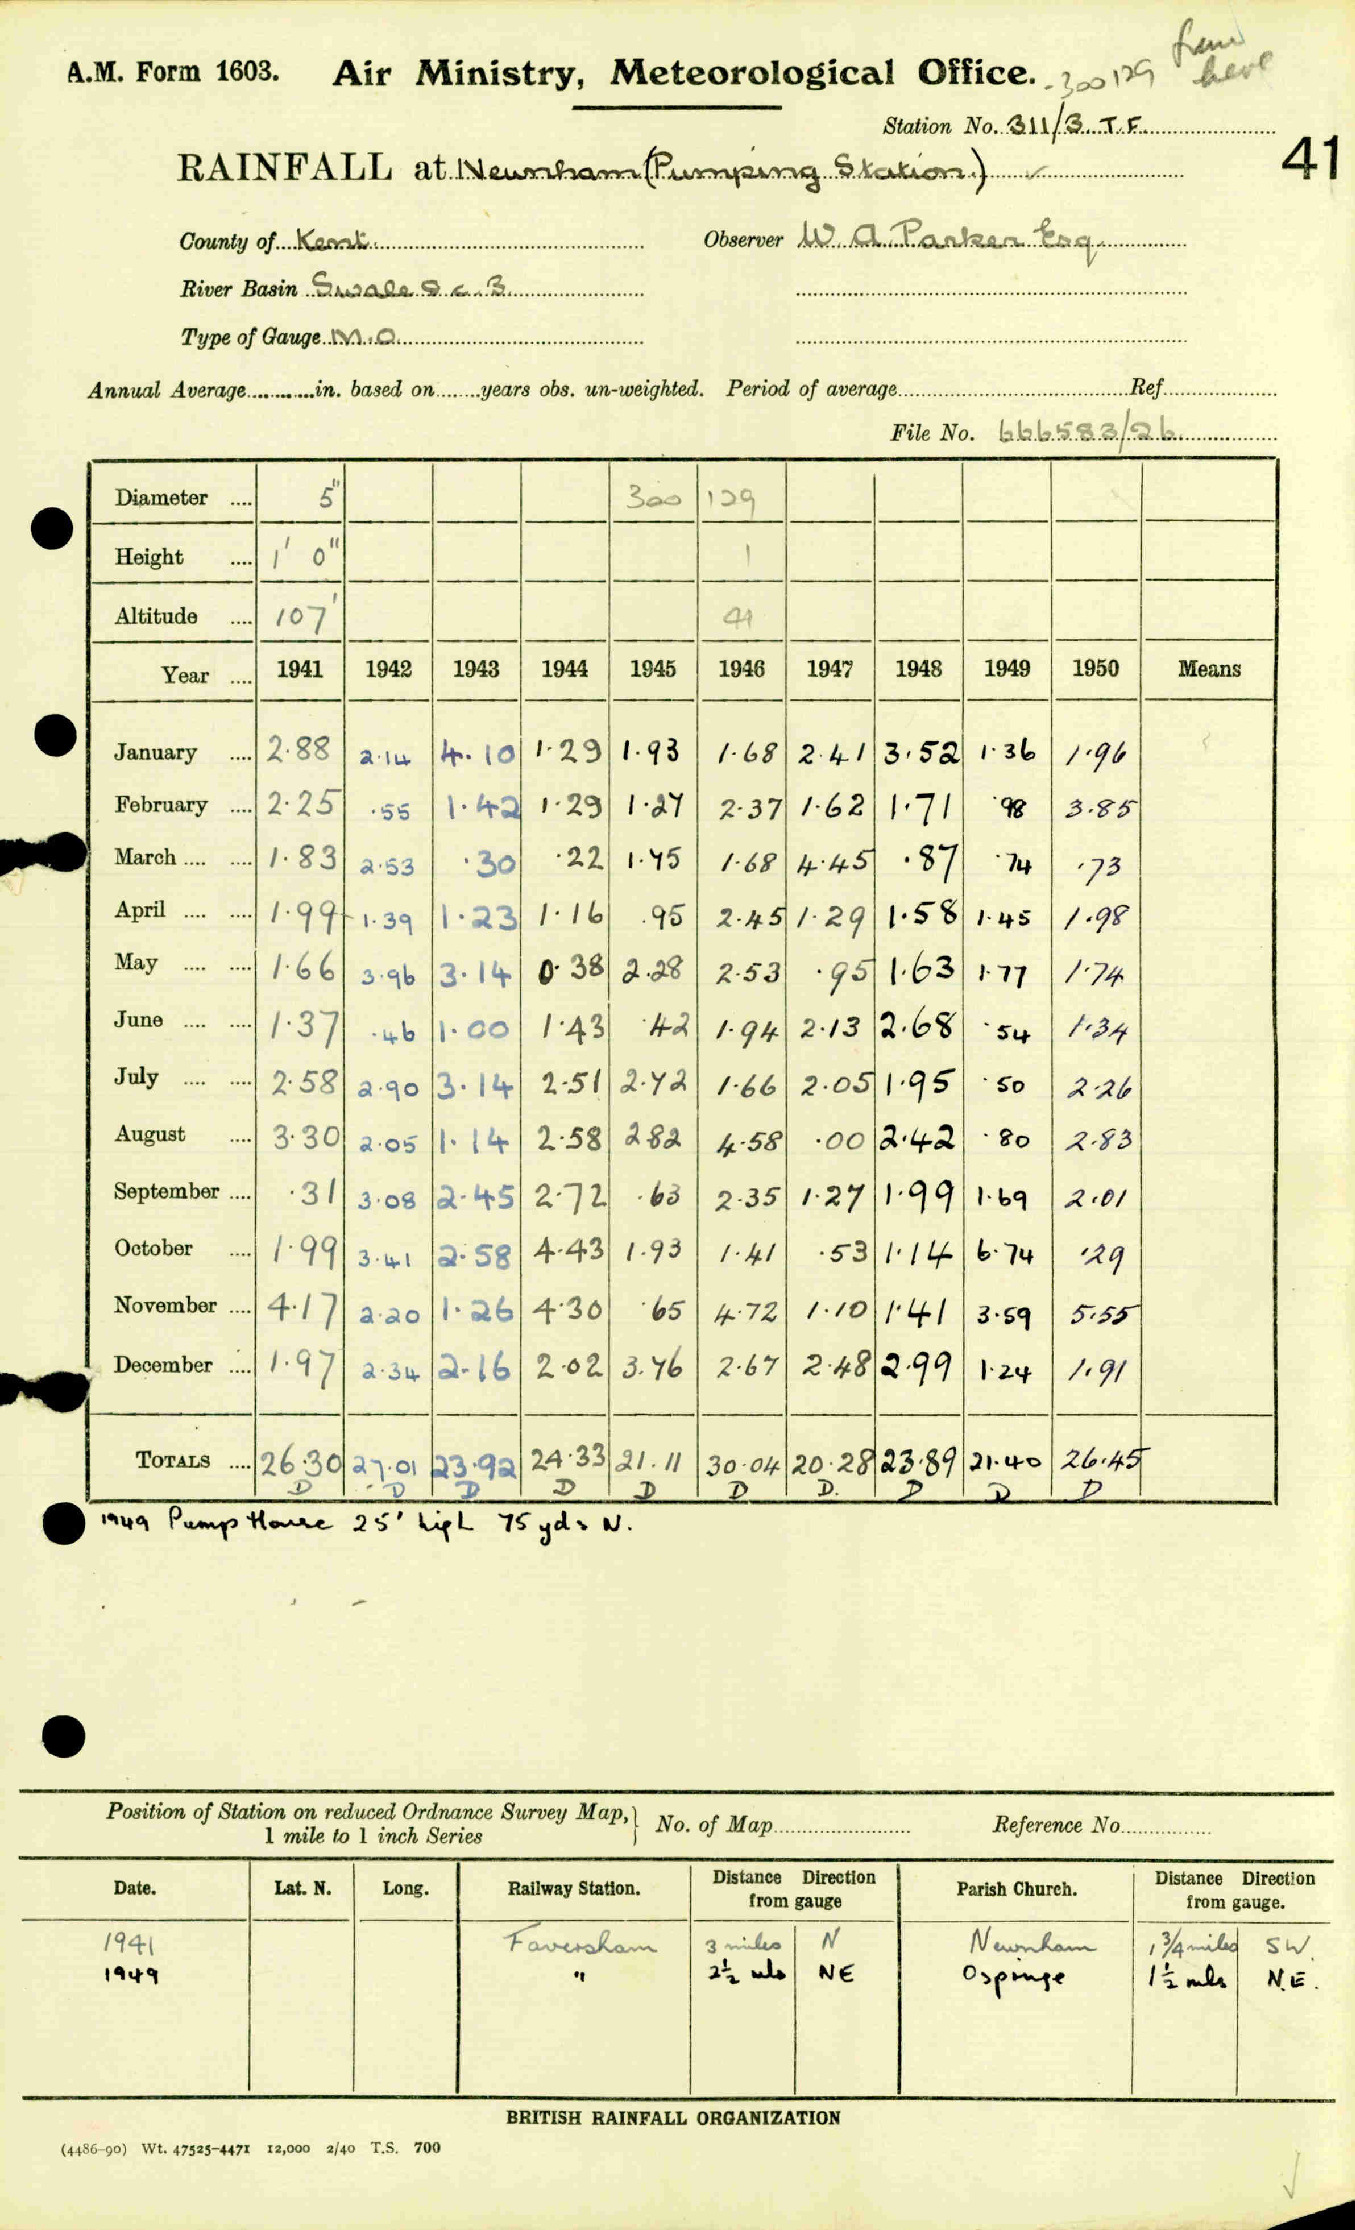 from here
A.M. Form 1603. Air Ministry, Meteorological Office. 300129
Station No. 311/3 T.F.
41
RAINFALL at Newnham (Pumping Station.) ✓
County of Kent Observer W A Parker Esq.
River Basin Swale S c. B
Type of Gauge M.O.
Annual Average............in. based on.......years obs. un-weighted. Period of average............Ref............
File No. 666583/26
Diameter .... 5" 300 129
Height .... 1' 0" 1
Altitude .... 107' 41
Year .... 1941 1942 1943 1944 1945 1946 1947 1948 1949 1950 Means
January .... 2.88 2.14 4.10 1.29 1.93 1.68 2.41 3.52 1.36 1.96
February .... 2.25 .55 1.42 1.29 1.27 2.37 1.62 1.71 .98 3.85
March .... .... 1.83 2.53 .30 .22 1.75 1.68 4.45 .87 .74 .73
April .... .... 1.99 1.39 1.23 1.16 .95 2.45 1.29 1.58 1.45 1.98
May .... .... 1.66 3.96 3.14 0.38 2.28 2.53 .95 1.63 1.77 1.74
June .... .... 1.37 .46 1.00 1.43 .42 1.94 2.13 2.68 .54 1.34
July .... .... 2.58 2.90 3.14 2.51 2.72 1.66 2.05 1.95 .50 2.26
August .... 3.30 2.05 1.14 2.58 2.82 4.58 .00 2.42 .80 2.83
September .... .31 3.08 2.45 2.72 .63 2.35 1.27 1.99 1.69 2.01
October .... 1.99 3.41 2.58 4.43 1.93 1.41 .53 1.14 6.74 .29
November .... 4.17 2.20 1.26 4.30 .65 4.72 1.10 1.41 3.59 5.55
December .... 1.97 2.34 2.16 2.02 3.76 2.67 2.48 2.99 1.24 1.91
TOTALS .... 26.30 27.01 23.92 24.33 21.11 30.04 20.28 23.89 21.40 26.45
D D D D D D D. D D D
1949 Pump House 25' high 75 yds N.
Position of Station on reduced Ordnance Survey Map, } No. of Map............ Reference No............
1 mile to 1 inch Series
Date. Lat. N. Long. Railway Station. Distance Direction from gauge Parish Church. Distance Direction from gauge.
1941 Faversham 3 miles N Newnham 1¾ miles SW.
1949 " 2½ mls NE Ospringe 1½ mls N.E.
BRITISH RAINFALL ORGANIZATION
(4486-90) Wt. 47525-4471 12,000 2/40 T.S. 700